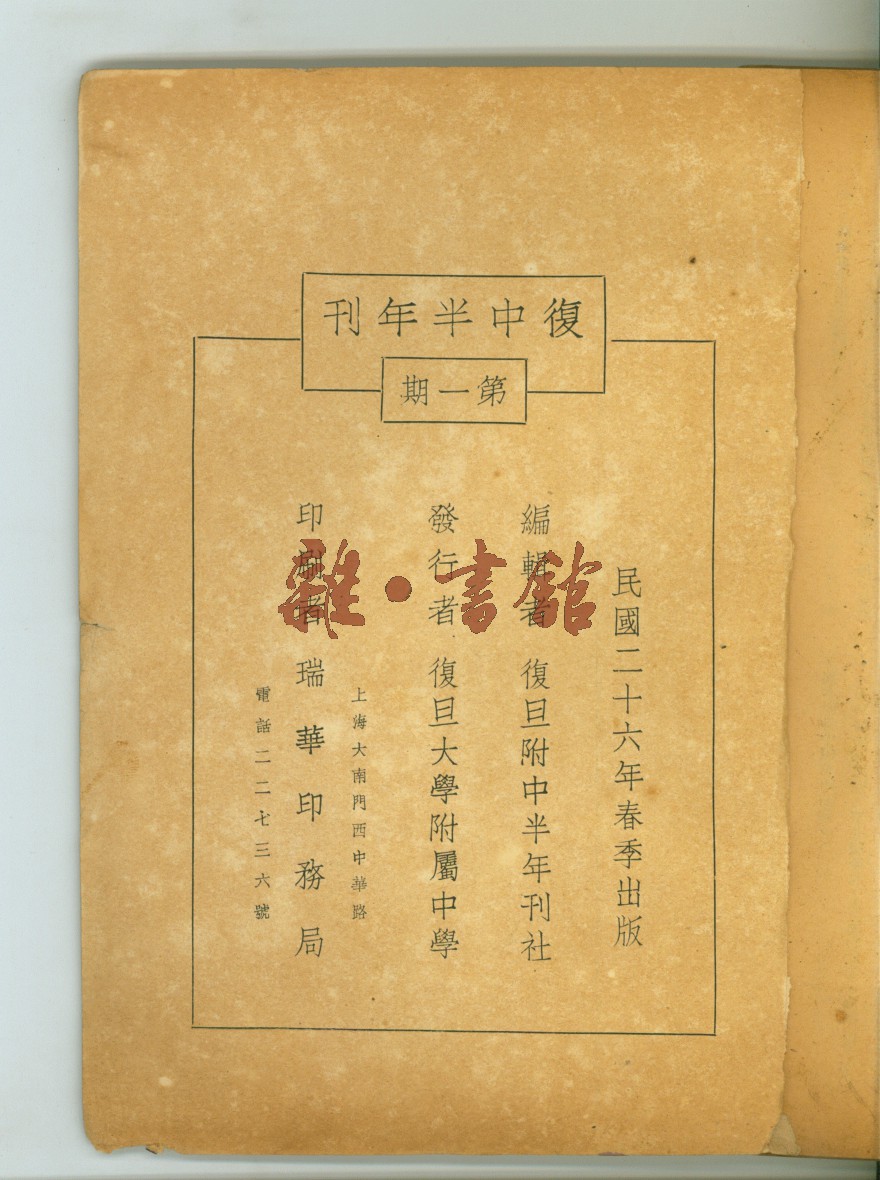 復中半年刊
第一期
民國二十六年春季出版
編輯者 復旦附中半年刊社
發行者 復旦大學附屬中學
上海大南門西中華路
印刷者 瑞華印務局
電話二二七三六號
雜·書館